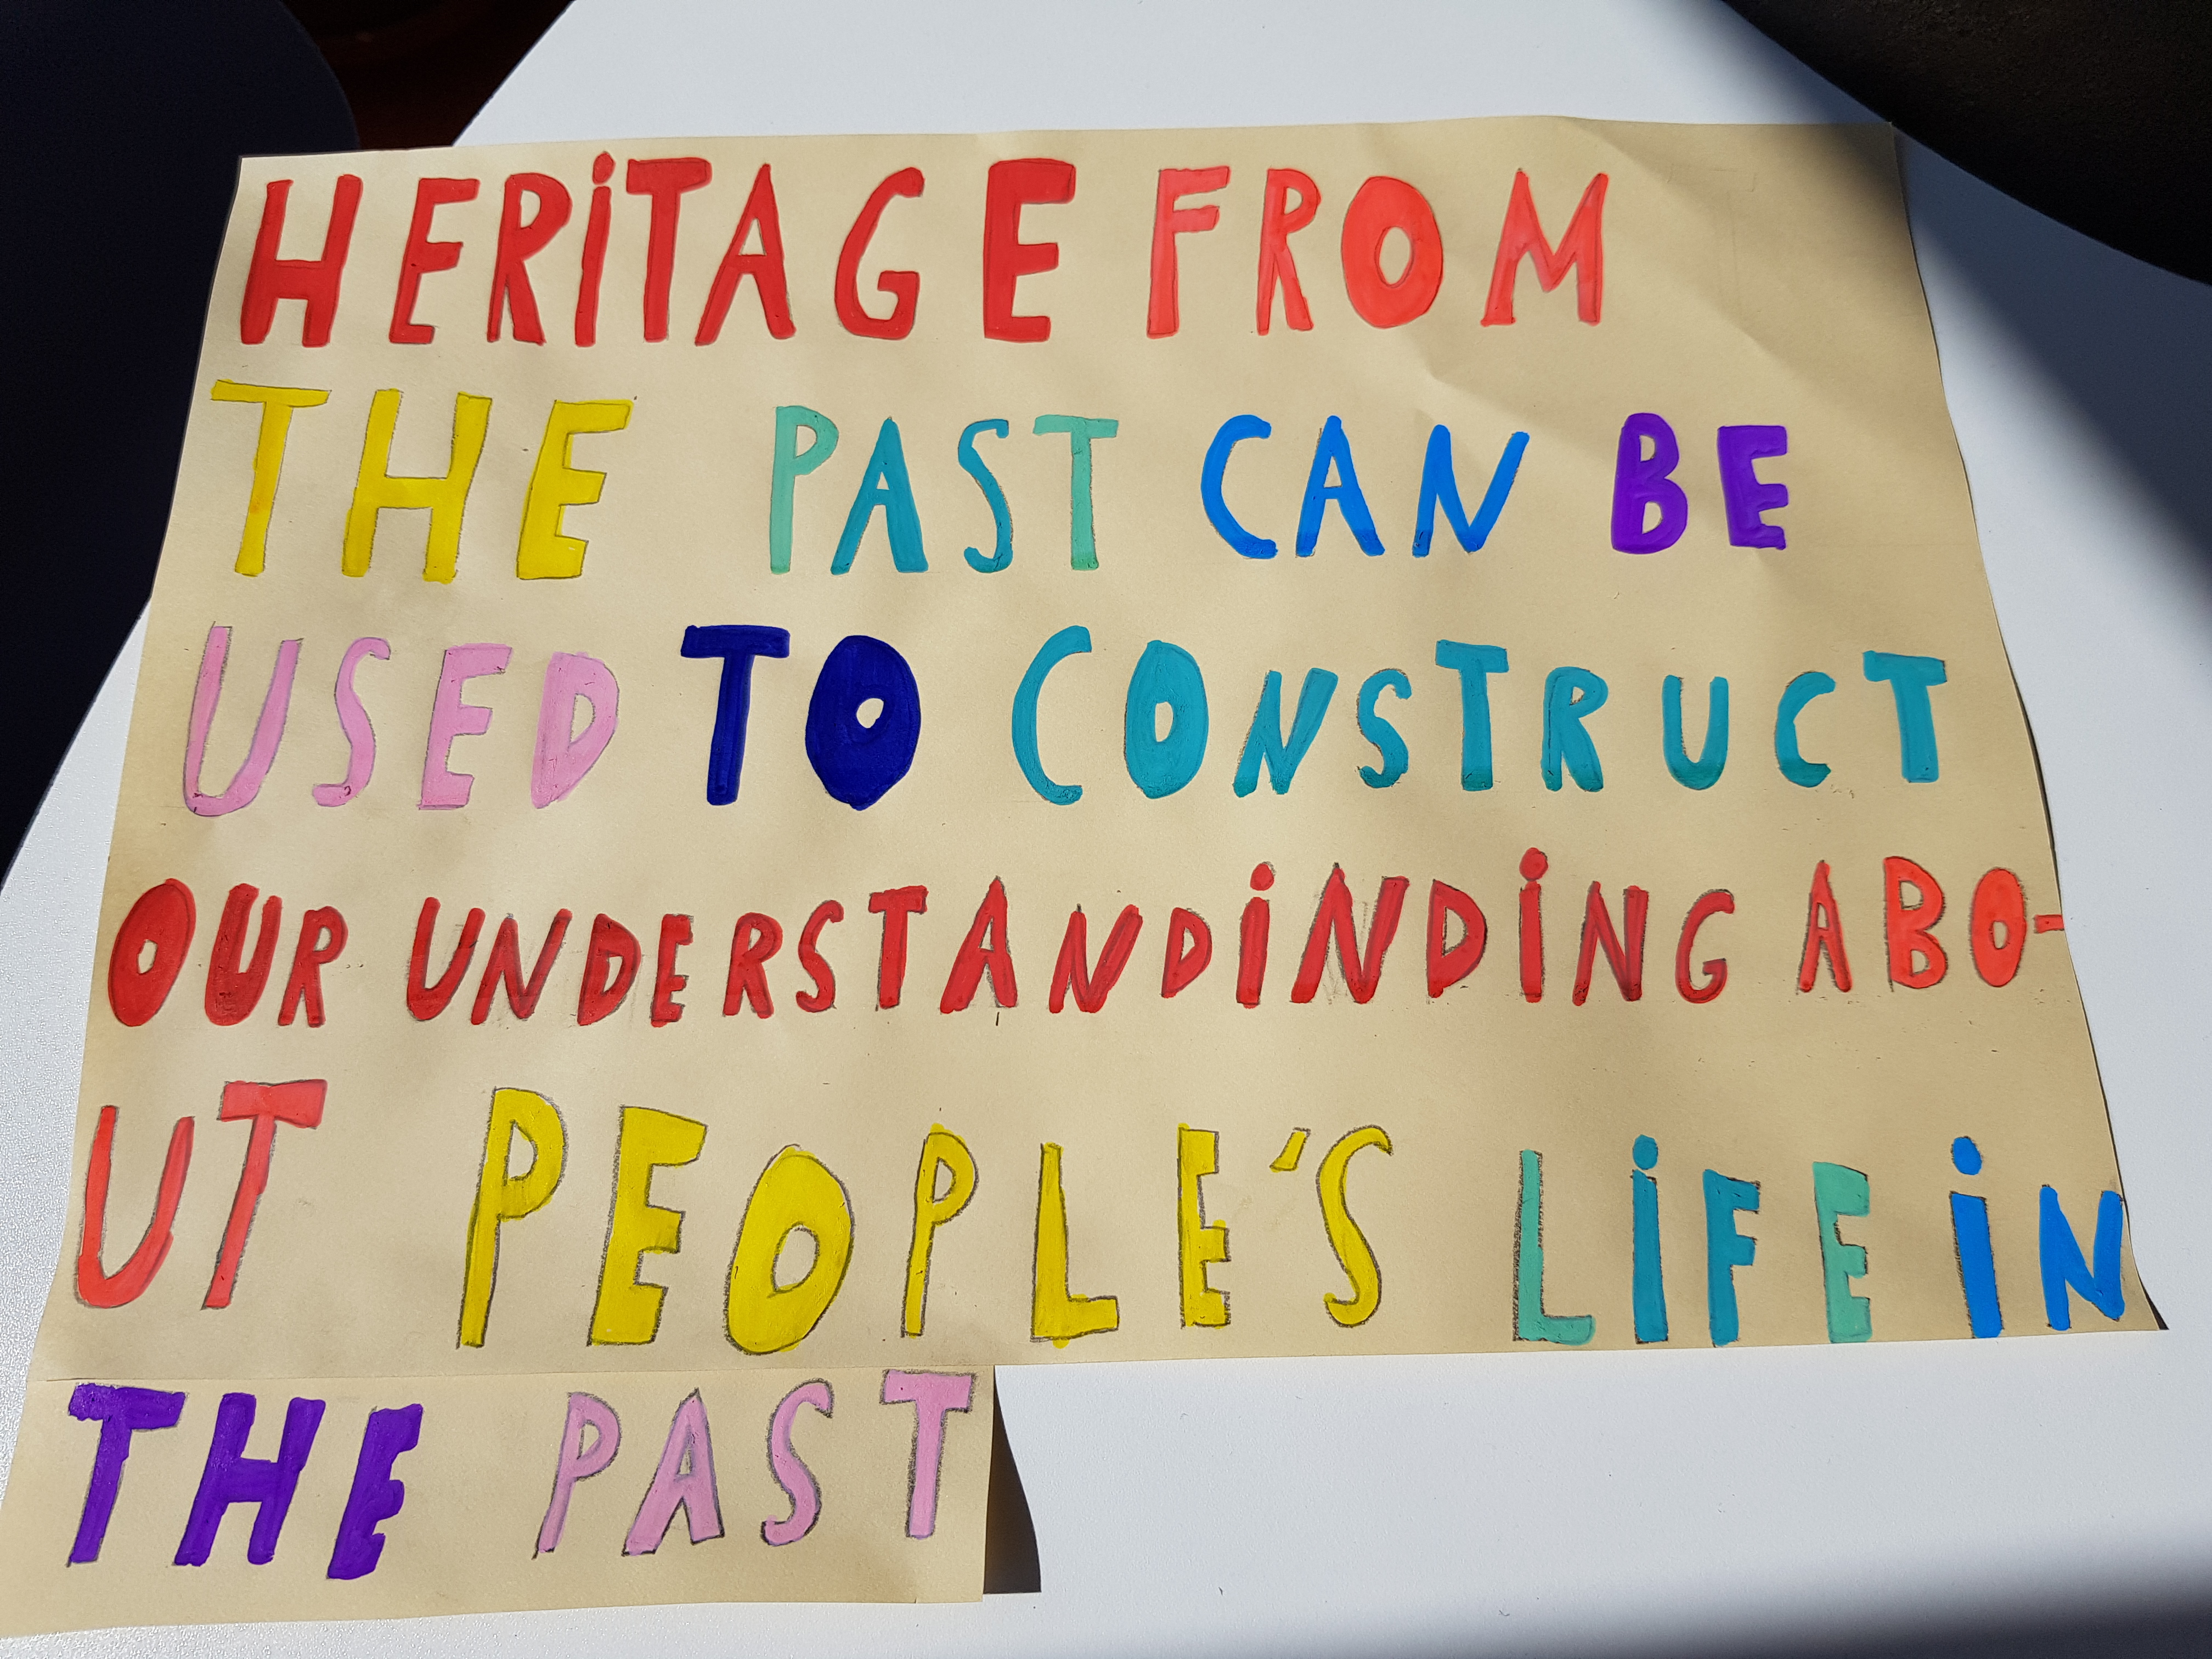 HERiTAGE FROM
THE PAST CAN BE
USED TO CONSTRUCT
OUR UNDERSTANDiNDiNG ABO-
UT PEOPLE'S LiFE iN
THE PAST